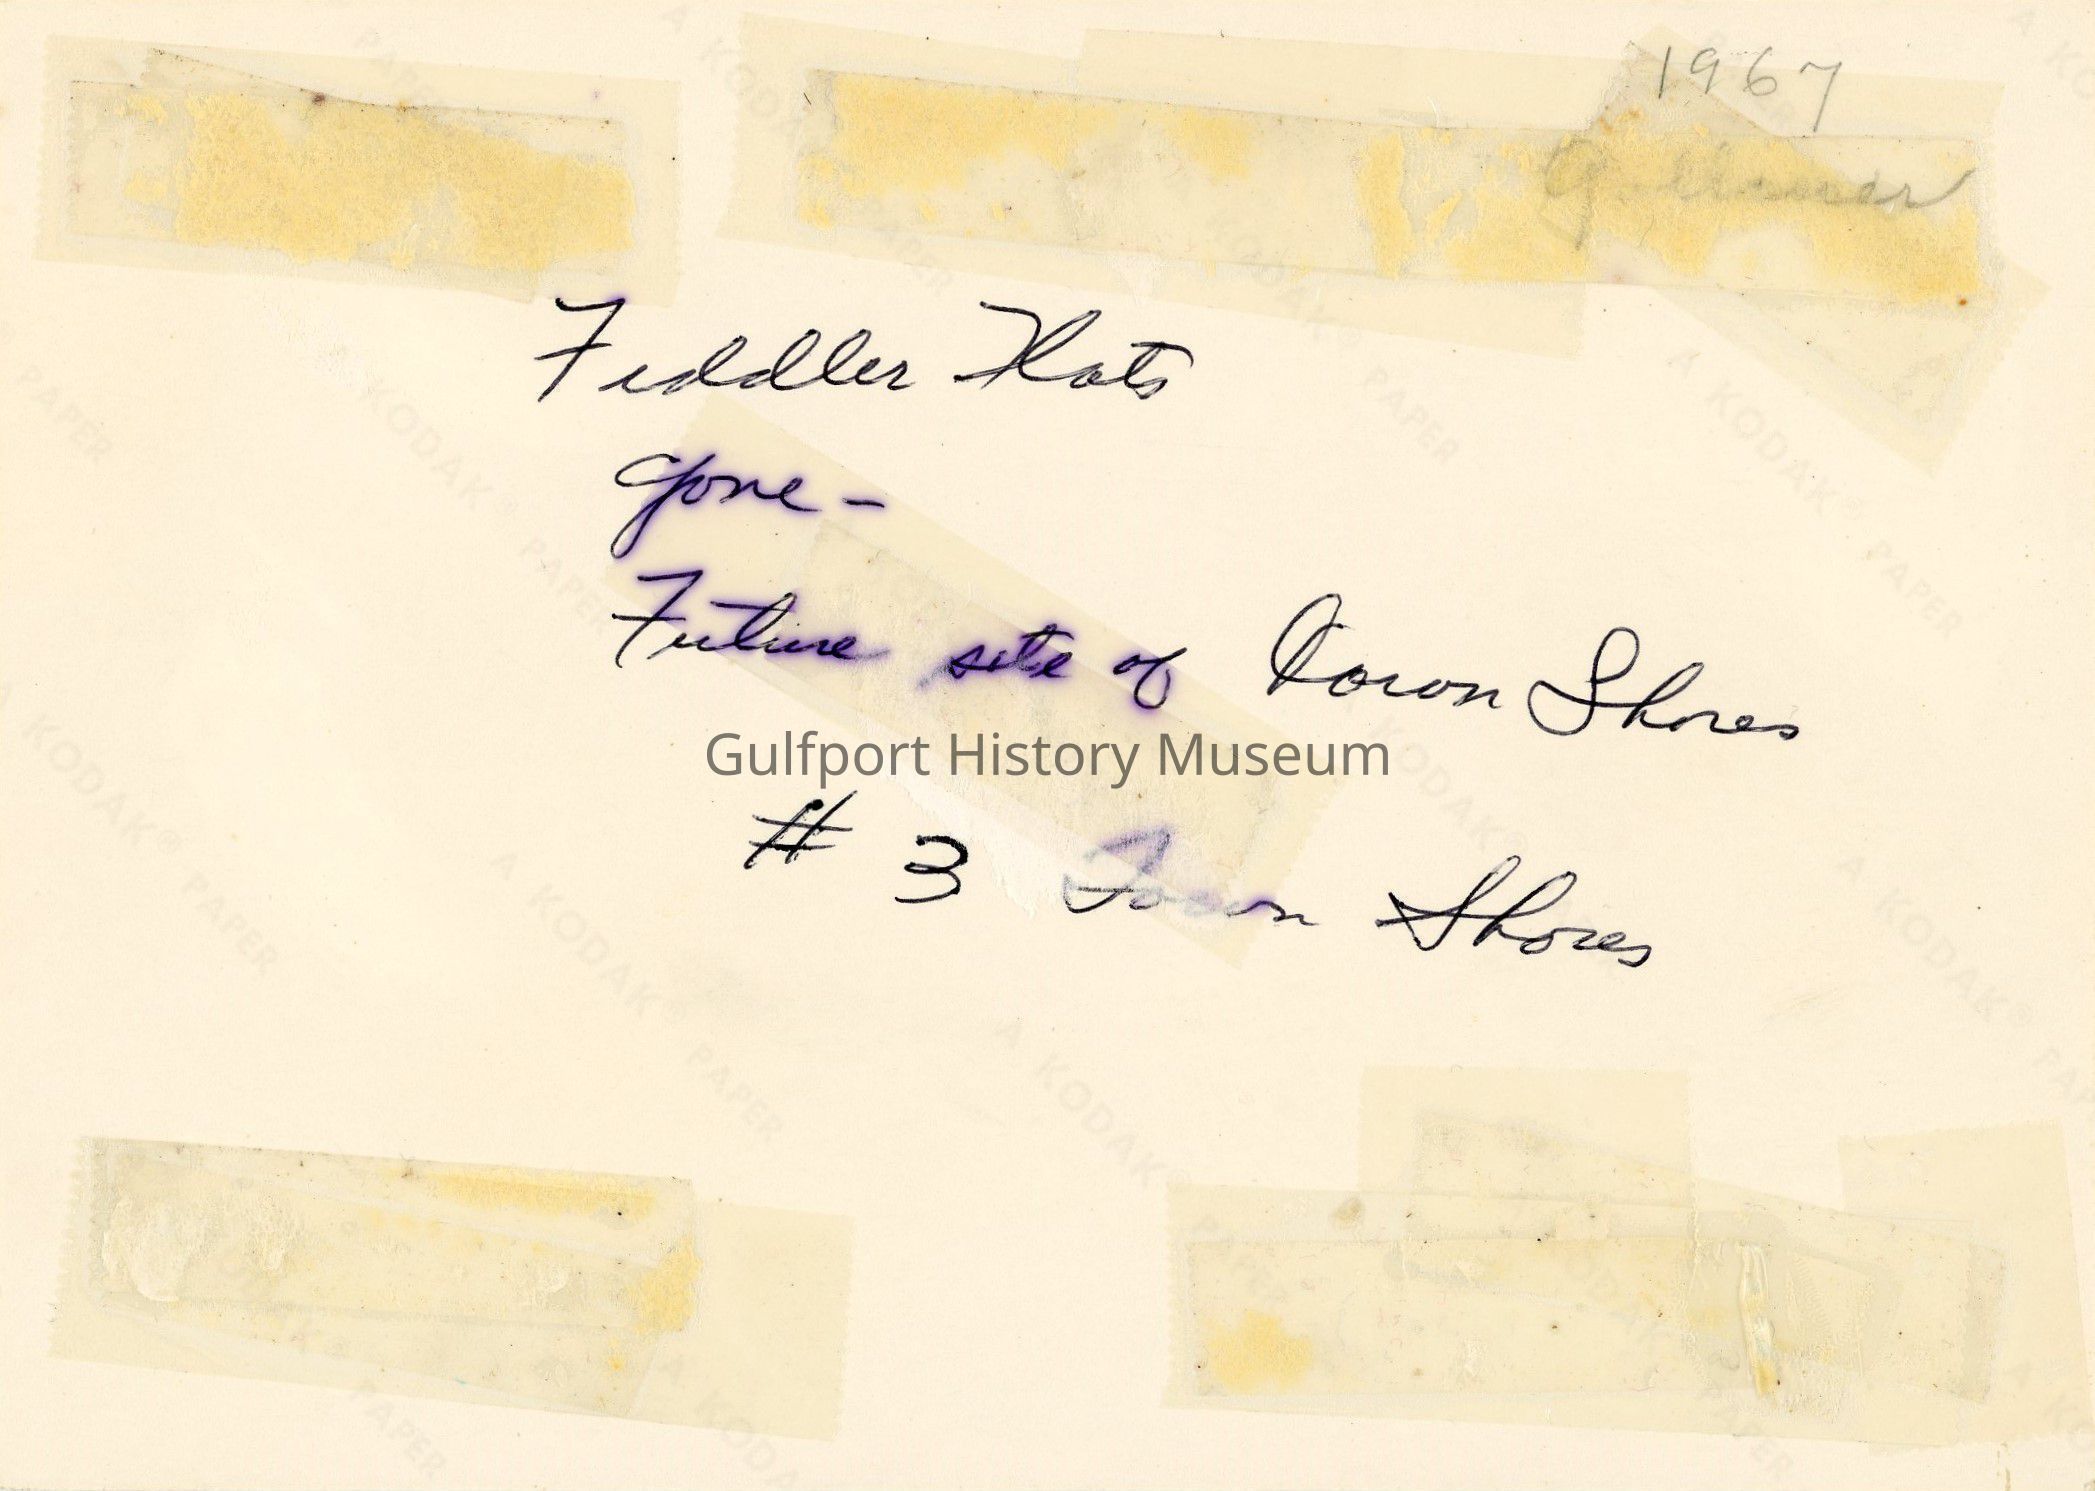 1967
Fiddler Flats
gone -
Future site of Town Shores
Gulfport History Museum
# 3 Town Shores
A KODAK® PAPER